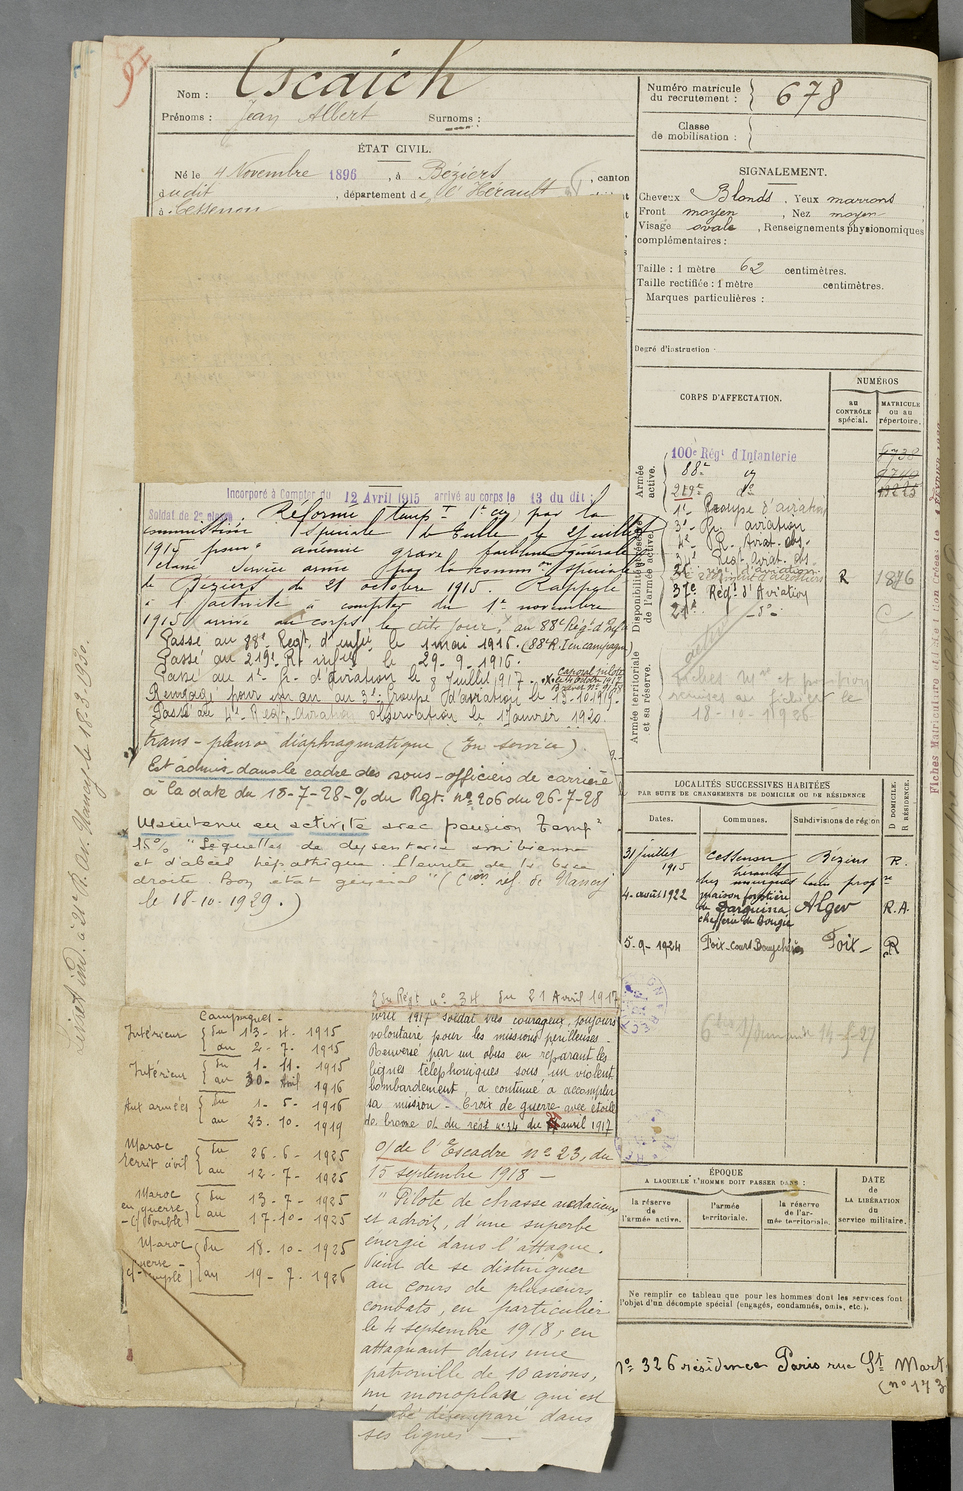 91
Nom : Escaich
Prénoms : Jean Albert Surnoms :
ÉTAT CIVIL.
Né le 4 Novembre 1896, à Béziers, canton
dudit, département de l'Hérault
à Cessenon
Numéro matricule du recrutement : 678
Classe de mobilisation :
SIGNALEMENT.
Cheveux Blonds, Yeux marrons
Front moyen, Nez moyen
Visage ovale, Renseignements physionomiques
complémentaires :
Taille : 1 mètre 62 centimètres.
Taille rectifiée : 1 mètre centimètres.
Marques particulières :
Degré d'instruction
CORPS D'AFFECTATION.
NUMÉROS
au CONTRÔLE spécial.
MATRICULE ou au répertoire.
Armée active.
100e Régt d'Infanterie
88e
219e do
Disponibilité et réserve de l'armée active.
1er Groupe d'aviation
3e R. aviation
4e R. Aviat. obs.
21e Régt. Aviat.
R 1876
37e Régt d'Aviation
21e do
Armée territoriale et sa réserve.
18-10-1926
Incorporé à Compter du 12 Avril 1915 arrivé au corps le 13 du dit
Soldat de 2e classe
Réformé temp. 1e cy par la
commission spéciale de Tulle le 2 juillet
1915 pour anémie grave faiblesse générale
Classé service armé par la comm.on spéciale
de Béziers du 21 octobre 1915. Rappelé
à l'activité à compter du 1er novembre
1915 arrivé au corps le dit jour, au 88e Régt d'Infie
Passé au 88e Regt. d'infie le 1 mai 1916. (88e R.I en campagne)
Passé au 219e Rt infie le 29-9-1916.
Passé au 1er g. d'aviation le 8 Juillet 1917.
caporal pilote
Rengagé pour un an au 3e Groupe d'aviation le 13-10-1919.
Passé au 4e Regt. aviation observation le 1 Janvier 1920.
trans-pleuro diaphragmatique (En service).
Est admis dans le cadre des sous-officiers de carrière
à la date du 18-7-28-% du Rgt. no 206 du 26-7-28
Maintenu en activité avec pension temp.
15% "Séquelles de dysenterie amibienne
et d'abcès hépathique. Pleurite de la base
droite. Bon état général" (Con réf. de Nancy
le 18-10-1929.)
LOCALITÉS SUCCESSIVES HABITÉES
PAR SUITE DE CHANGEMENTS DE DOMICILE OU DE RÉSIDENCE
Dates. Communes. Subdivisions de région
D DOMICILE.
R RÉSIDENCE.
31 juillet 1915 Cessenon Hérault Béziers R.
4-août 1922 maison forestière Alger R.A.
5-9-1924 Foix-Court Bouychères Foix R
Campagnes-
Intérieur { du 13-4-1915
au 2-7-1915
Intérieur { du 1-11-1915
au 30-Avil 1916
Aux armées { du 1-5-1916
au 23-10-1919
Maroc territ civil { du 26-6-1925
au 12-7-1925
Maroc en guerre -C/ (double) { du 13-7-1925
au 17-10-1925
Maroc { du 18-10-1925
au 19-7-1926
du Régt no 34 du 21 Avril 1917
avril 1917 soldat très courageux, toujours
volontaire pour les missions périlleuses-
Renversé par un obus en réparant les
lignes téléphoniques sous un violent
bombardement, a continué à accomplir
sa mission - Croix de guerre avec étoile
de bronze o/ du régt no 34 du 21 avril 1917
o/ de l'Escadre no 23, du
15 septembre 1918 -
"Pilote de chasse audacieux
et adroit, d'une superbe
énergie dans l'attaque.
Vient de se distinguer
au cours de plusieurs
combats, en particulier
le 4 septembre 1918, en
attaquant dans une
patrouille de 10 avions,
un monoplan qui est
tombé désemparé dans
ses lignes -
ÉPOQUE
A LAQUELLE L'HOMME DOIT PASSER DANS :
la réserve de l'armée active.
l'armée territoriale.
la réserve de l'armée territoriale.
DATE de LA LIBÉRATION du service militaire.
Ne remplir ce tableau que pour les hommes dont les services font
l'objet d'un décompte spécial (engagés, condamnés, omis, etc.).
no 326 résidence Paris rue St Mart
(no 173